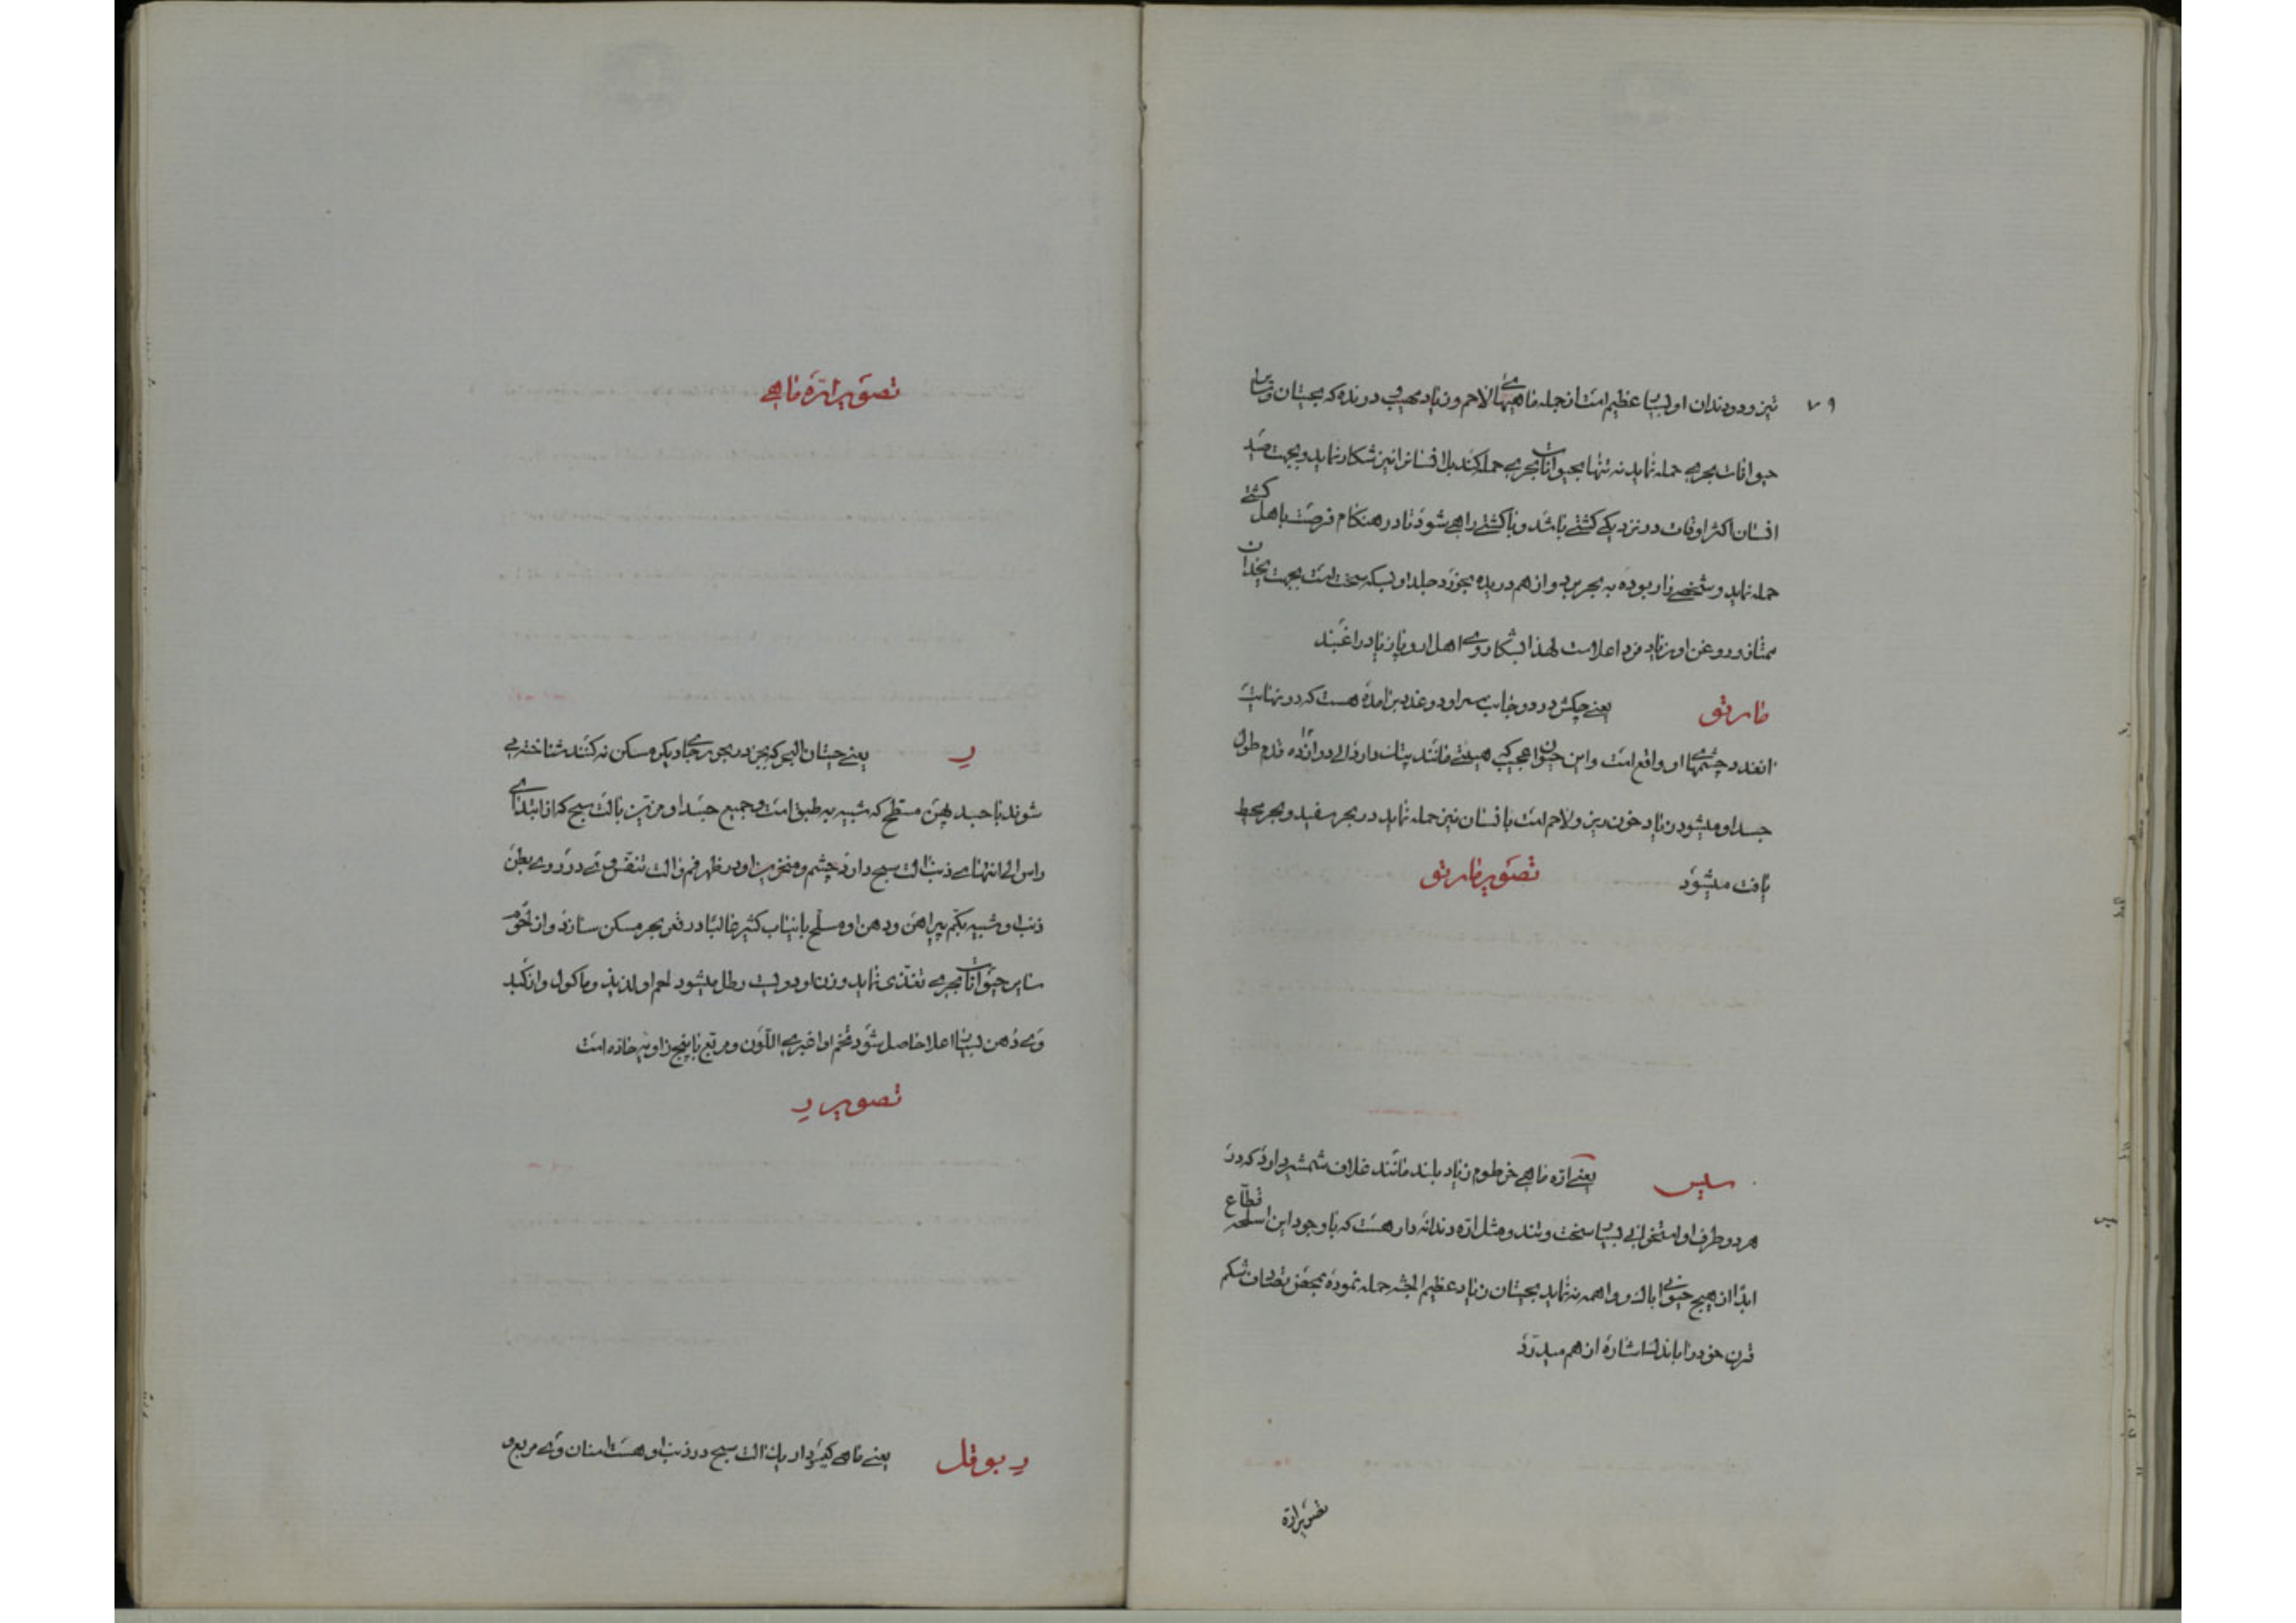 ۷۹
تیز و دو دندان او بسیار عظیم است از جمله ماهیهای لاحم و زیاد مهیب درنده که بحیتان و سایر
حیوانات بحری حمله نماید نه تنها بحیوانات بحری حمله کند بل انسانرا نیز شکار نماید و بجهت صید
انسان اکثر اوقات در نزدیکی کشتی باشد و با کشتی راهی شود تا در هنگام فرصت باهل کشتی
حمله نماید و شخصی را ربوده به بحر برد و از هم دریده بخورد جلد او بسکه سخت است بجهت یخدان
ممتاز و روغن او زیاد فرد اعلاست لهذا بشکار وی اهل اروپا زیاد راغبند
مارتو یعنی چکش در دو جانب سر او دو غده برامده هست که در نهایت
انغدد چشمهای او واقع است و این حیوان عجیب هیئتی مانند پتک دارد الی دوازده قدم طول
جسد او میشود زیاد خون ریز و لاحم است بانسان نیز حمله نماید در بحر سفید و بحر محیط
یافت میشود تصویر مارتو
سیس یعنی اره ماهی خرطوم زیاد بلند مانند غلاف شمشیر دارد که در
هر دو طرف او استخوانی بسیار سخت و تند و مثل اره دندانه دار هست که با وجود این اسلحه قطاع
ابدا از هیچ حیوانی باک و واهمه نه نماید بحیتان زیاد عظیم الجثه حمله نموده بمحض تصادف شکم
قرن خود را باندک اشاره از هم میدرد
تصویر اره
تصویر اره ماهی
ر یعنی حیتان البحر که بجز در بحر بجای دیگر مسکن نه کنند شناخته می
شوند با جسد پهن مسطح که شبیه به طبق است و جمیع جسد او مزین بالت سبح که از ابتدای
راس الی انتهای ذنب الت سبح دارد چشم و منخرین او در ظهر فم و الت تنفس وی در روی بطن
ذنب او شبیه بکم پیراهن و دهن او مسلح بانیاب کثیر غالبا در قعر بحر مسکن سازد و از لحوم
سایر حیوانات بحری تغذی نماید وزن او دویست رطل میشود لحم او لذیذ و ماکول و از کبد
وی دهن بسیار اعلا حاصل شود تخم او اغبری اللون و مربع با پنج زاویه حاده است
تصویر ر
ر بوقل یعنی ماهی گیره دار یک الت سبح در ذنب او هست اسنان وی مربع و